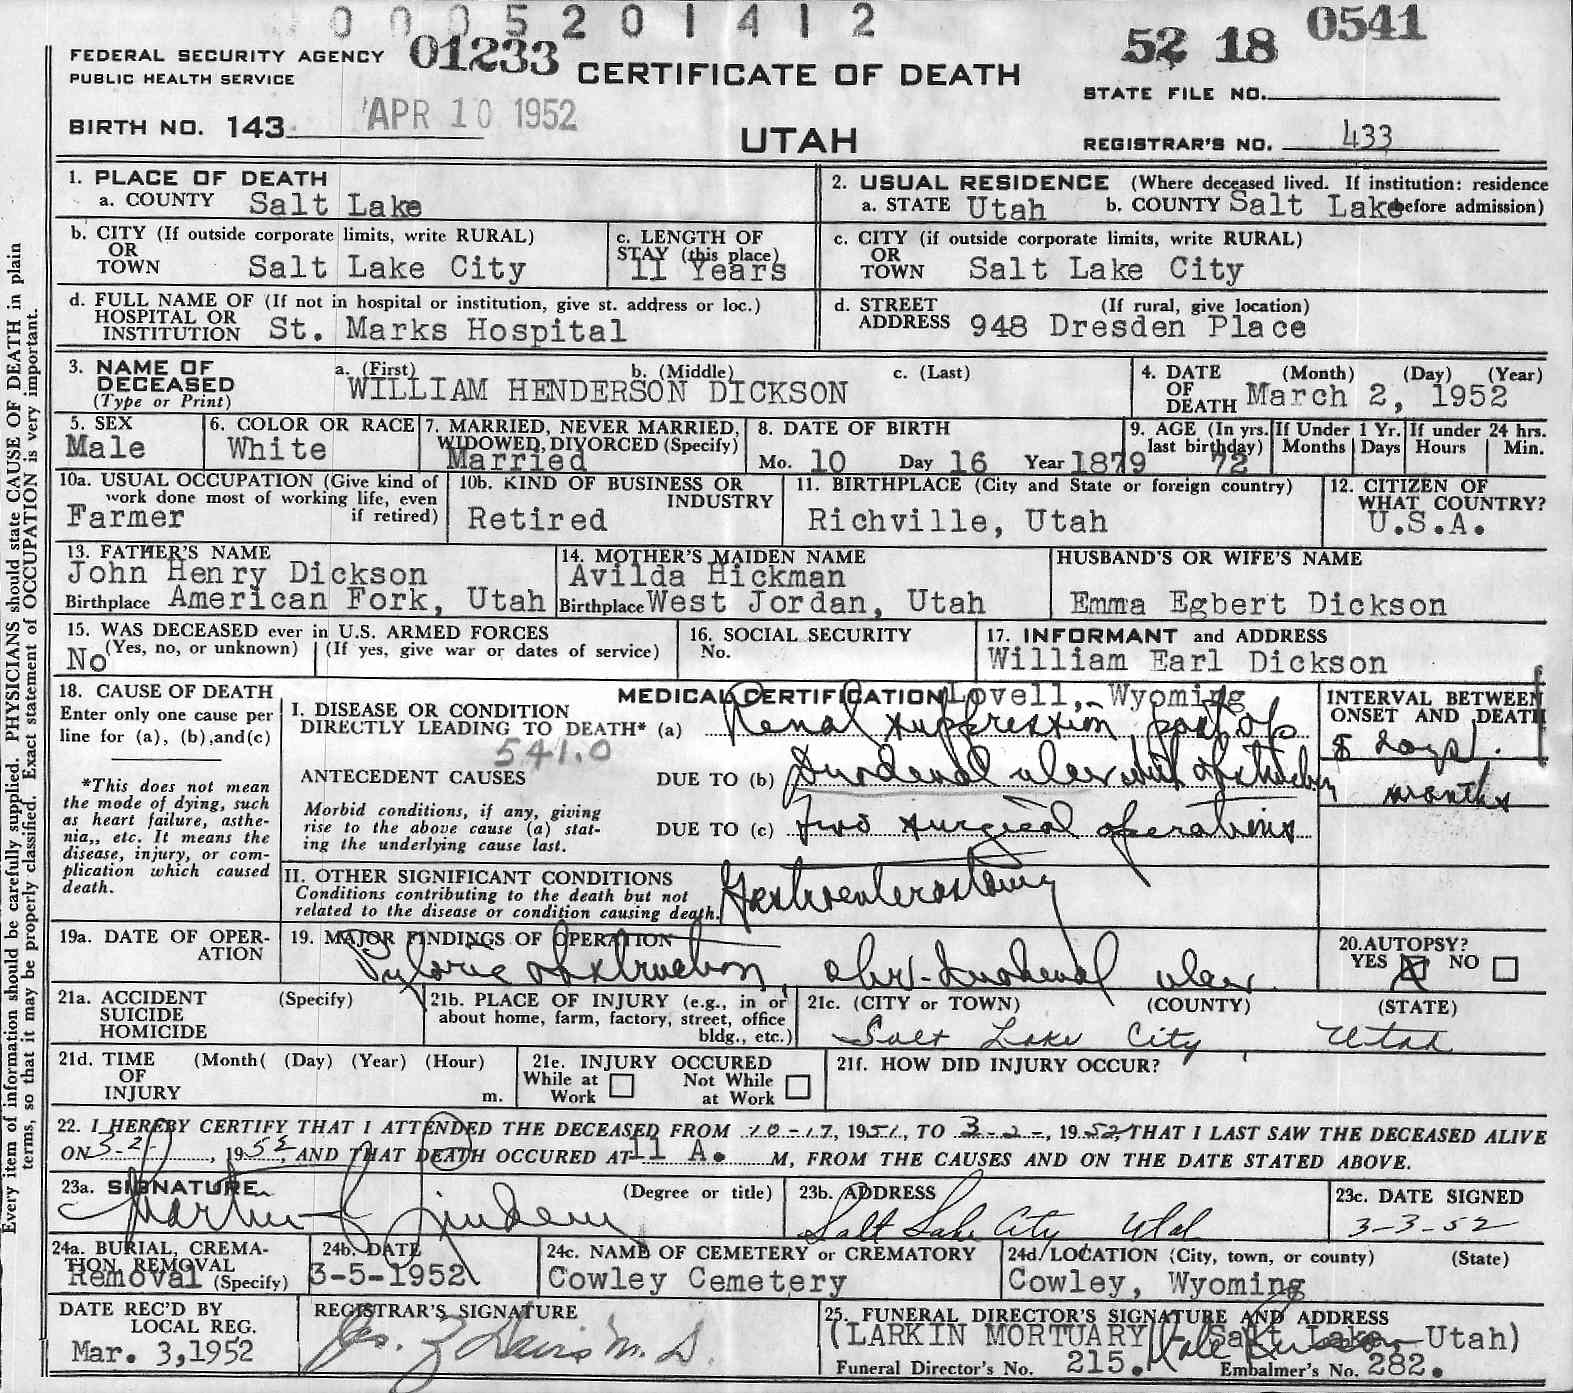 0 0 0 5 2 0 1 4 1 2
FEDERAL SECURITY AGENCY 01233 52 18 0541
PUBLIC HEALTH SERVICE CERTIFICATE OF DEATH STATE FILE NO.
BIRTH NO. 143 APR 10 1952 UTAH REGISTRAR'S NO. 433
1. PLACE OF DEATH
a. COUNTY Salt Lake
2. USUAL RESIDENCE (Where deceased lived. If institution: residence before admission)
a. STATE Utah b. COUNTY Salt Lake
b. CITY (If outside corporate limits, write RURAL)
OR
TOWN Salt Lake City
c. LENGTH OF
STAY (this place)
11 Years
c. CITY (if outside corporate limits, write RURAL)
OR
TOWN Salt Lake City
d. FULL NAME OF (If not in hospital or institution, give st. address or loc.)
HOSPITAL OR
INSTITUTION St. Marks Hospital
d. STREET (If rural, give location)
ADDRESS 948 Dresden Place
3. NAME OF
DECEASED
(Type or Print)
a. (First) b. (Middle) c. (Last)
WILLIAM HENDERSON DICKSON
4. DATE (Month) (Day) (Year)
OF
DEATH March 2, 1952
5. SEX
Male
6. COLOR OR RACE
White
7. MARRIED, NEVER MARRIED,
WIDOWED, DIVORCED (Specify)
Married
8. DATE OF BIRTH
Mo. 10 Day 16 Year 1879
9. AGE (In yrs.
last birthday)
72
If Under 1 Yr.
Months Days
If under 24 hrs.
Hours Min.
10a. USUAL OCCUPATION (Give kind of
work done most of working life, even
if retired)
Farmer
10b. KIND OF BUSINESS OR
INDUSTRY
Retired
11. BIRTHPLACE (City and State or foreign country)
Richville, Utah
12. CITIZEN OF
WHAT COUNTRY?
U.S.A.
13. FATHER'S NAME
John Henry Dickson
Birthplace American Fork, Utah
14. MOTHER'S MAIDEN NAME
Avilda Hickman
Birthplace West Jordan, Utah
HUSBAND'S OR WIFE'S NAME
Emma Egbert Dickson
15. WAS DECEASED ever in U.S. ARMED FORCES
(Yes, no, or unknown) (If yes, give war or dates of service)
No
16. SOCIAL SECURITY
No.
17. INFORMANT and ADDRESS
William Earl Dickson
Lovell, Wyoming
18. CAUSE OF DEATH
Enter only one cause per
line for (a), (b), and (c)
*This does not mean
the mode of dying, such
as heart failure, asthe-
nia,, etc. It means the
disease, injury, or com-
plication which caused
death.
MEDICAL CERTIFICATION
I. DISEASE OR CONDITION
DIRECTLY LEADING TO DEATH* (a) Renal suppression, post op
541.0
ANTECEDENT CAUSES DUE TO (b) Duodenal ulcer with obstruction
Morbid conditions, if any, giving
rise to the above cause (a) stat-
ing the underlying cause last.
DUE TO (c) Two surgical operations
INTERVAL BETWEEN
ONSET AND DEATH
8 days
months
II. OTHER SIGNIFICANT CONDITIONS
Conditions contributing to the death but not
related to the disease or condition causing death.
Gastroenterostomy
19a. DATE OF OPER-
ATION
19. MAJOR FINDINGS OF OPERATION
Pyloric obstruction, chr. duodenal ulcer
20. AUTOPSY?
YES X NO
21a. ACCIDENT (Specify)
SUICIDE
HOMICIDE
21b. PLACE OF INJURY (e.g., in or
about home, farm, factory, street, office
bldg., etc.)
21c. (CITY or TOWN) (COUNTY) (STATE)
Salt Lake City, Utah
21d. TIME (Month( (Day) (Year) (Hour)
OF
INJURY m.
21e. INJURY OCCURED
While at Work Not While at Work
21f. HOW DID INJURY OCCUR?
22. I HEREBY CERTIFY THAT I ATTENDED THE DECEASED FROM 10-17, 1951, TO 3-2-, 1952, THAT I LAST SAW THE DECEASED ALIVE
ON 3-2, 1952 AND THAT DEATH OCCURED AT 11 A. M, FROM THE CAUSES AND ON THE DATE STATED ABOVE.
23a. SIGNATURE (Degree or title)
Martin
23b. ADDRESS
Salt Lake City Utah
23c. DATE SIGNED
3-3-52
24a. BURIAL, CREMA-
TION, REMOVAL
Removal (Specify)
24b. DATE
3-5-1952
24c. NAME OF CEMETERY or CREMATORY
Cowley Cemetery
24d. LOCATION (City, town, or county) (State)
Cowley, Wyoming
DATE REC'D BY
LOCAL REG.
Mar. 3,1952
REGISTRAR'S SIGNATURE
M. D.
25. FUNERAL DIRECTOR'S SIGNATURE AND ADDRESS
(LARKIN MORTUARY Salt Lake, Utah)
Funeral Director's No. 215. Embalmer's No. 282.
Every item of information should be carefully supplied. PHYSICIANS should state CAUSE OF DEATH in plain
terms, so that it may be properly classified. Exact statement of OCCUPATION is very important.